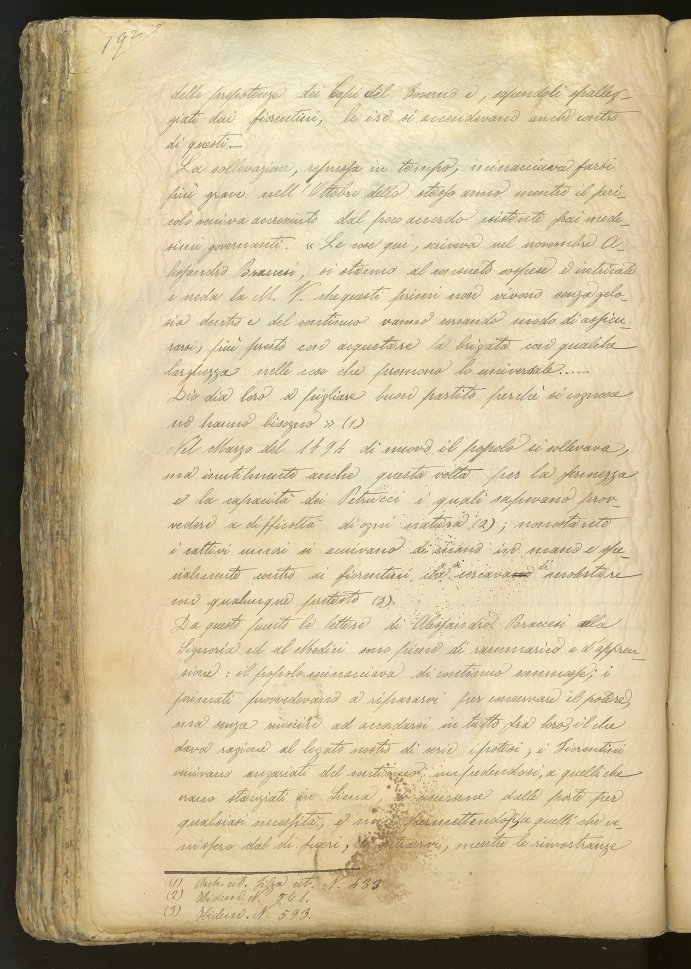 192
delle prepotenze dei Capi del Governo e, sapendoli spalleg-
giati dai fiorentini, le ire si accendevano anche contro
di questi.—
La sollevazione, repressa in tempo, minacciava farsi
più grave nell'Ottobre dello stesso anno mentre il peri-
colo veniva accresciuto dal poco accordo esistente frai mede-
simi governanti. « Le cose qui, scriveva nel novembre A-
lessandro Braccesi, si stanno al consueto sospese e intricate
e creda la M. V. che questi primi non vivono senza gelo-
sia dentro e del continuo vanno cercando modo di assicu-
rarsi, più presto con acquistare la brigata con qualche
larghezza nelle cose che premono lo universale.....
Dio dia loro a pigliare buon partito perchè si cognosce
ne hanno bisogno » (1)
Nel Marzo del 1494 di nuovo il popolo si sollevava,
ma inutilmente anche questa volta per la fermezza
e la capacità dei Petrucci i quali sapevano prov-
vedere a difficoltà di ogni natura (2); nonostante
i cattivi umori si acuivano di mano in mano e spe-
cialmente contro ai fiorentini cercavano molestare
con qualunque pretesto (3).
Da questo punto le lettere di Alessandro Braccesi alla
Signoria ed al Medici sono piene di rammarico e d'appren-
sione: il popolo minacciava di continuo sommosse; i
primati provvedevano a ripararvi per conservare il potere,
ma senza riuscire ad accordarsi in tutto fra loro, il che
dava ragione al legato nostro di serie ipotesi; i Fiorentini
venivano angariati del continuo, impedendosi, a quelli che
erano stanziati in Siena, uscirsene dalle porte per
qualsiasi necessità, e non permettendosi a quelli che ve-
nissero dal di fuori, entrarvi, mentre le rimostranze
(1) Arch. cit. filza cit. N. 433
(2) Ibidem. N. 561.
(3) Ibidem. N. 593.